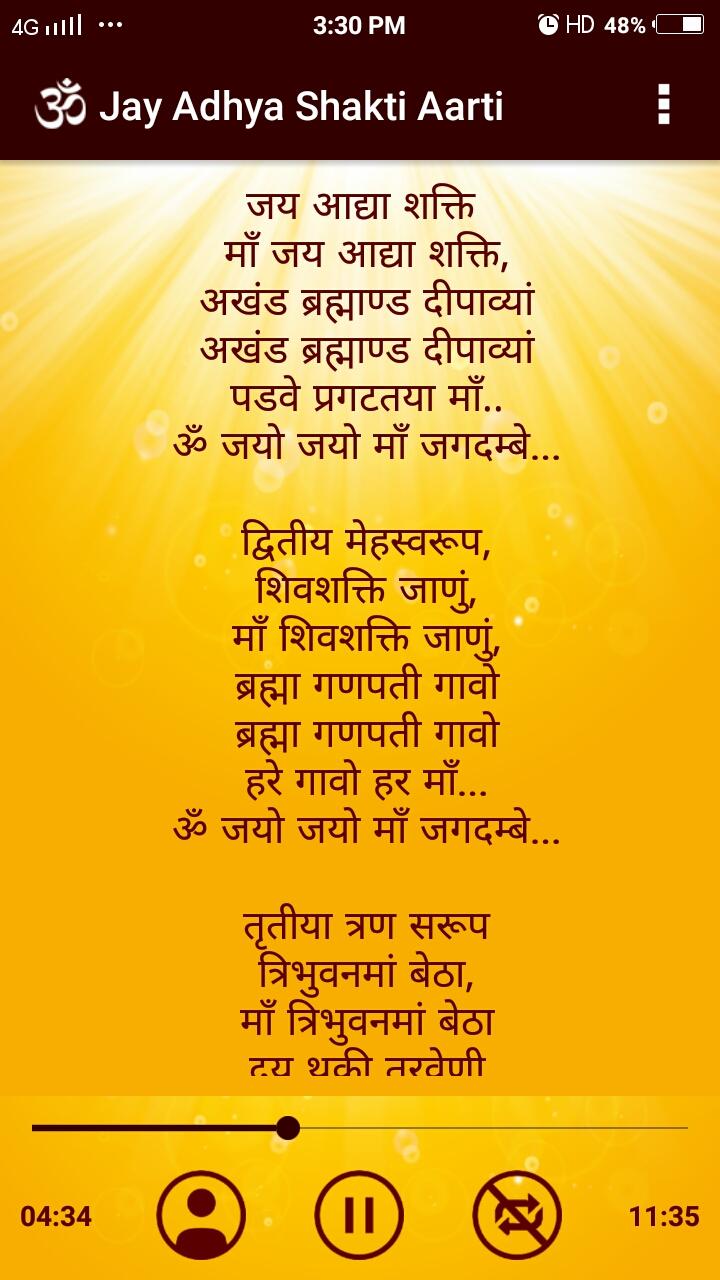 4G 3:30 PM HD 48%
ॐ Jay Adhya Shakti Aarti
जय आद्या शक्ति
माँ जय आद्या शक्ति,
अखंड ब्रह्माण्ड दीपाव्यां
अखंड ब्रह्माण्ड दीपाव्यां
पडवे प्रगटतया माँ..
ॐ जयो जयो माँ जगदम्बे...
द्वितीय मेहस्वरूप,
शिवशक्ति जाणुं,
माँ शिवशक्ति जाणुं,
ब्रह्मा गणपती गावो
ब्रह्मा गणपती गावो
हरे गावो हर माँ...
ॐ जयो जयो माँ जगदम्बे...
तृतीया त्रण सरूप
त्रिभुवनमां बेठा,
माँ त्रिभुवनमां बेठा
थकी तरवेणी
04:34 11:35